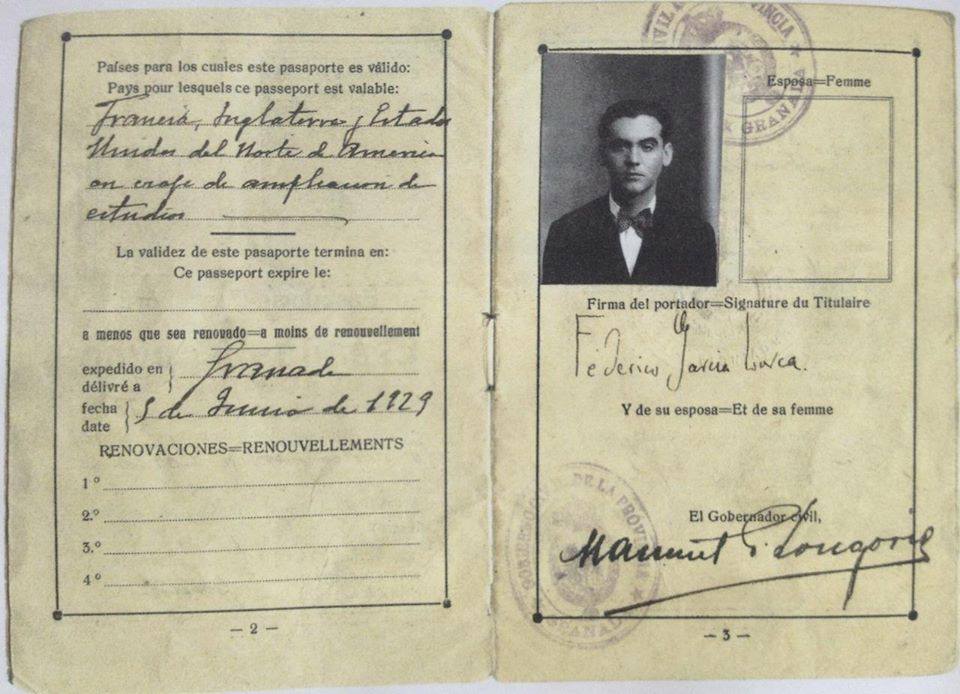 Países para los cuales este pasaporte es válido:
Pays pour lesquels ce passeport est valable:
Francia, Inglaterra y Estados
Unidos del Norte de America
en viaje de ampliacion de
estudios
La validez de este pasaporte termina en:
Ce passeport expire le:
a menos que sea renovado=a moins de renouvellement
expedido en
délivré a
Granada
fecha
date
5 de Junio de 1929
RENOVACIONES=RENOUVELLEMENTS
1º
2.º
3.º
4º
— 2 —
GRANADA
Esposa=Femme
Firma del portador=Signature du Titulaire
Federico García Lorca.
Y de su esposa=Et de sa femme
GOBIERNO CIVIL DE LA PROVINCIA
GRANADA
El Gobernador civil,
Manuel
— 3 —